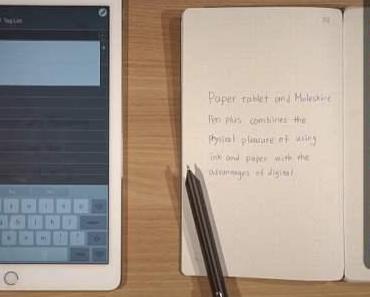 Tag List
Paper tablet and Moleskine
Pen plus combines the
physical pleasure of using
ink and paper with the
advantages of digital.